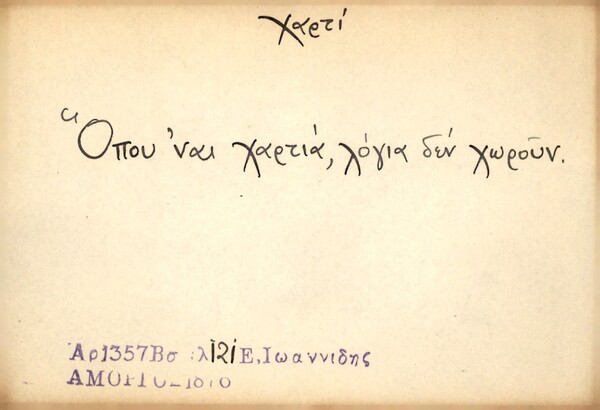 χαρτί
Ὅπου 'ναι χαρτιά, λόγια δέν χωροῦν.
Αρ1357Βσ λ121 Ε,Ιωαννιδης
ΑΜΟΡΓΟΣ 1876